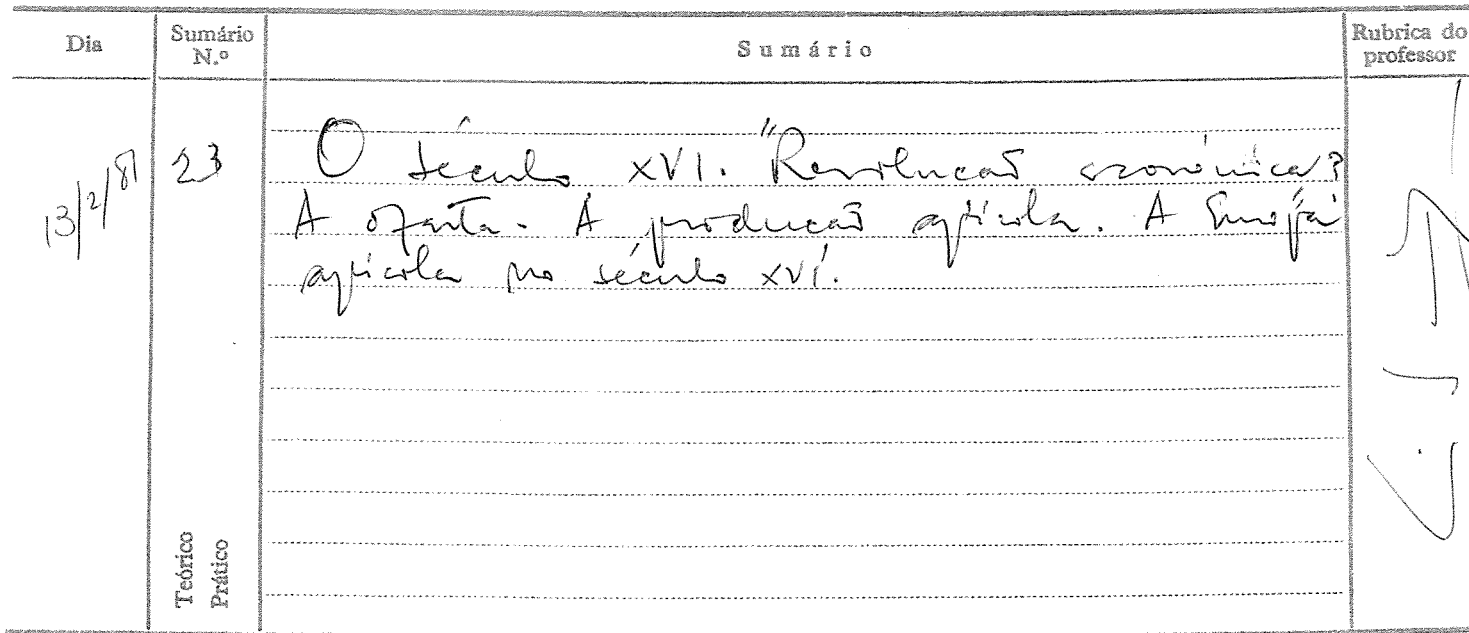 Dia
Sumário N.º
Sumário
Rubrica do professor
13/2/81
23
O século XVI. "Revolução económica"?
A oferta. A produção agrícola. A Europa
agrícola no século XVI.
Teórico
Prático